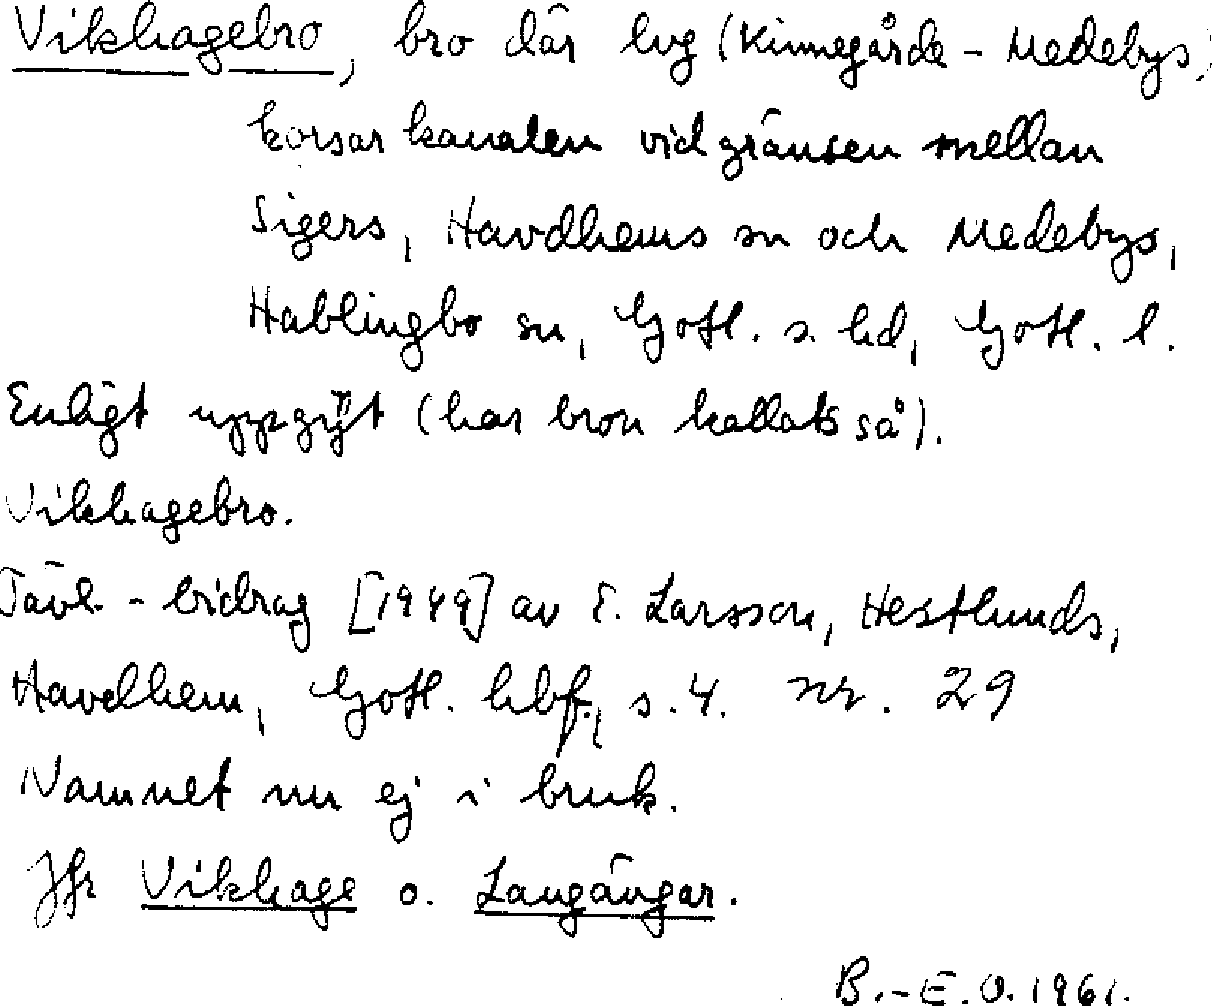 Vikhagebro, bro där lvg (Kinnegårde - Medebys)
korsar kanalen vid gränsen mellan
Sigers, Havdhems sn och Medebys,
Hablingbo sn, Gotl. s. hd, Gotl. l.
Enligt uppgift (har bron kallats så).
Vikhagebro.
Tävl. - bidrag [1949] av E. Larsson, Hestlunds,
Havdhem, Gotl. hbf., s. 4. nr. 29
Namnet nu ej i bruk.
Jfr Vikhage o. Langängar.
B.-E. O. 1961.